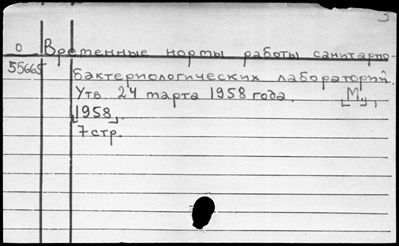 О Временные нормы работы санитарно-
55665 бактериологических лабораторий.
Утв. 24 марта 1958 года. [М.],
[1958].
7 стр.